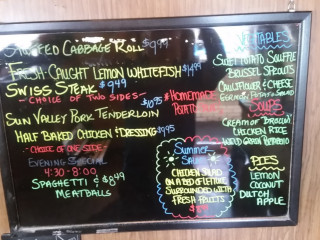 Stuffed Cabbage Roll $9.99
Fresh Caught Lemon Whitefish $14.99
Swiss Steak $9.49
- Choice of Two Sides -
Sun Valley Pork Tenderloin $10.95
Half Baked Chicken & Dressing $9.95
- Choice of One Side -
Evening Special
4:30 - 8:00
Spaghetti & $8.49
Meatballs
* Homemade
Potato
Summer
Salad
Chicken Salad
on a bed of lettuce
surrounded with
fresh fruits
Vegetables
Sweet Potato Souffle
Brussel Sprouts
Cauliflower & Cheese
German Potato Salad
Soups
Cream of Broccoli
Chicken Rice
Pies
Lemon
Coconut
Dutch
Apple